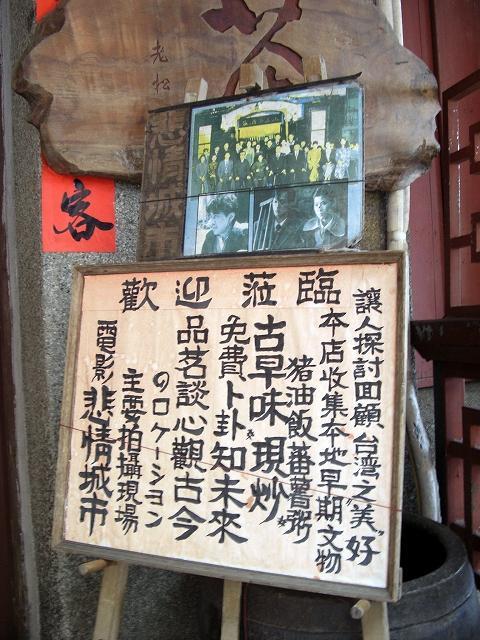 茶
老松
悲情城市
客
歡迎蒞臨
電影悲情城市
主要拍攝現場
のロケーション
品茗談心觀古今
免費卜卦知未來
古早味現炒
猪油飯蕃薯粥
本店收集本地早期文物
讓人探討回顧台灣之"美"好